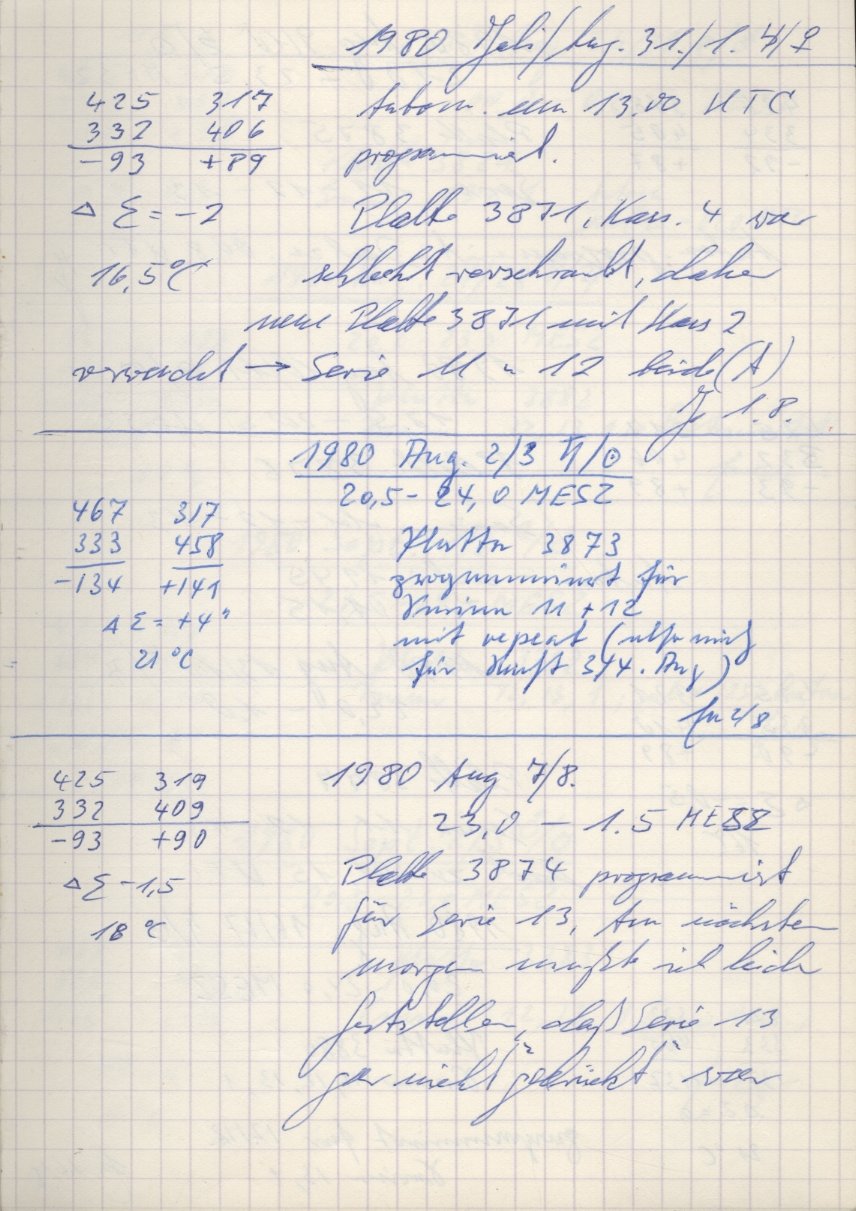 1980 Juli/Aug. 31./1. ♃/♀
425 317
332 406
-93 +89
Δ Σ = -2
16,5°C
Autom. um 13.00 UTC
programmiert.
Platte 3871, Kass. 4 war
schlecht verschraubt, daher
neue Platte 3871 mit Kass 2
→ Serie 11 u 12 beide (A)
1.8.
1980 Aug. 2/3 ♄/⊙
20,5 - 24,0 MESZ
467 317
333 458
-134 +141
Δ Σ = +4"
21 °C
Platte 3873
programmiert für
Serien 11 + 12
mit repeat (also auch
für Nacht 3/4. Aug)
2/8
1980 Aug 7/8.
23,0 - 1.5 MESZ
425 319
332 409
-93 +90
Δ Σ -1,5
18 °C
Platte 3874 programmiert
für Serie 13, Am nächsten
morgen mußte ich leider
feststellen, daß Serie 13
gar nicht "gedrückt" war